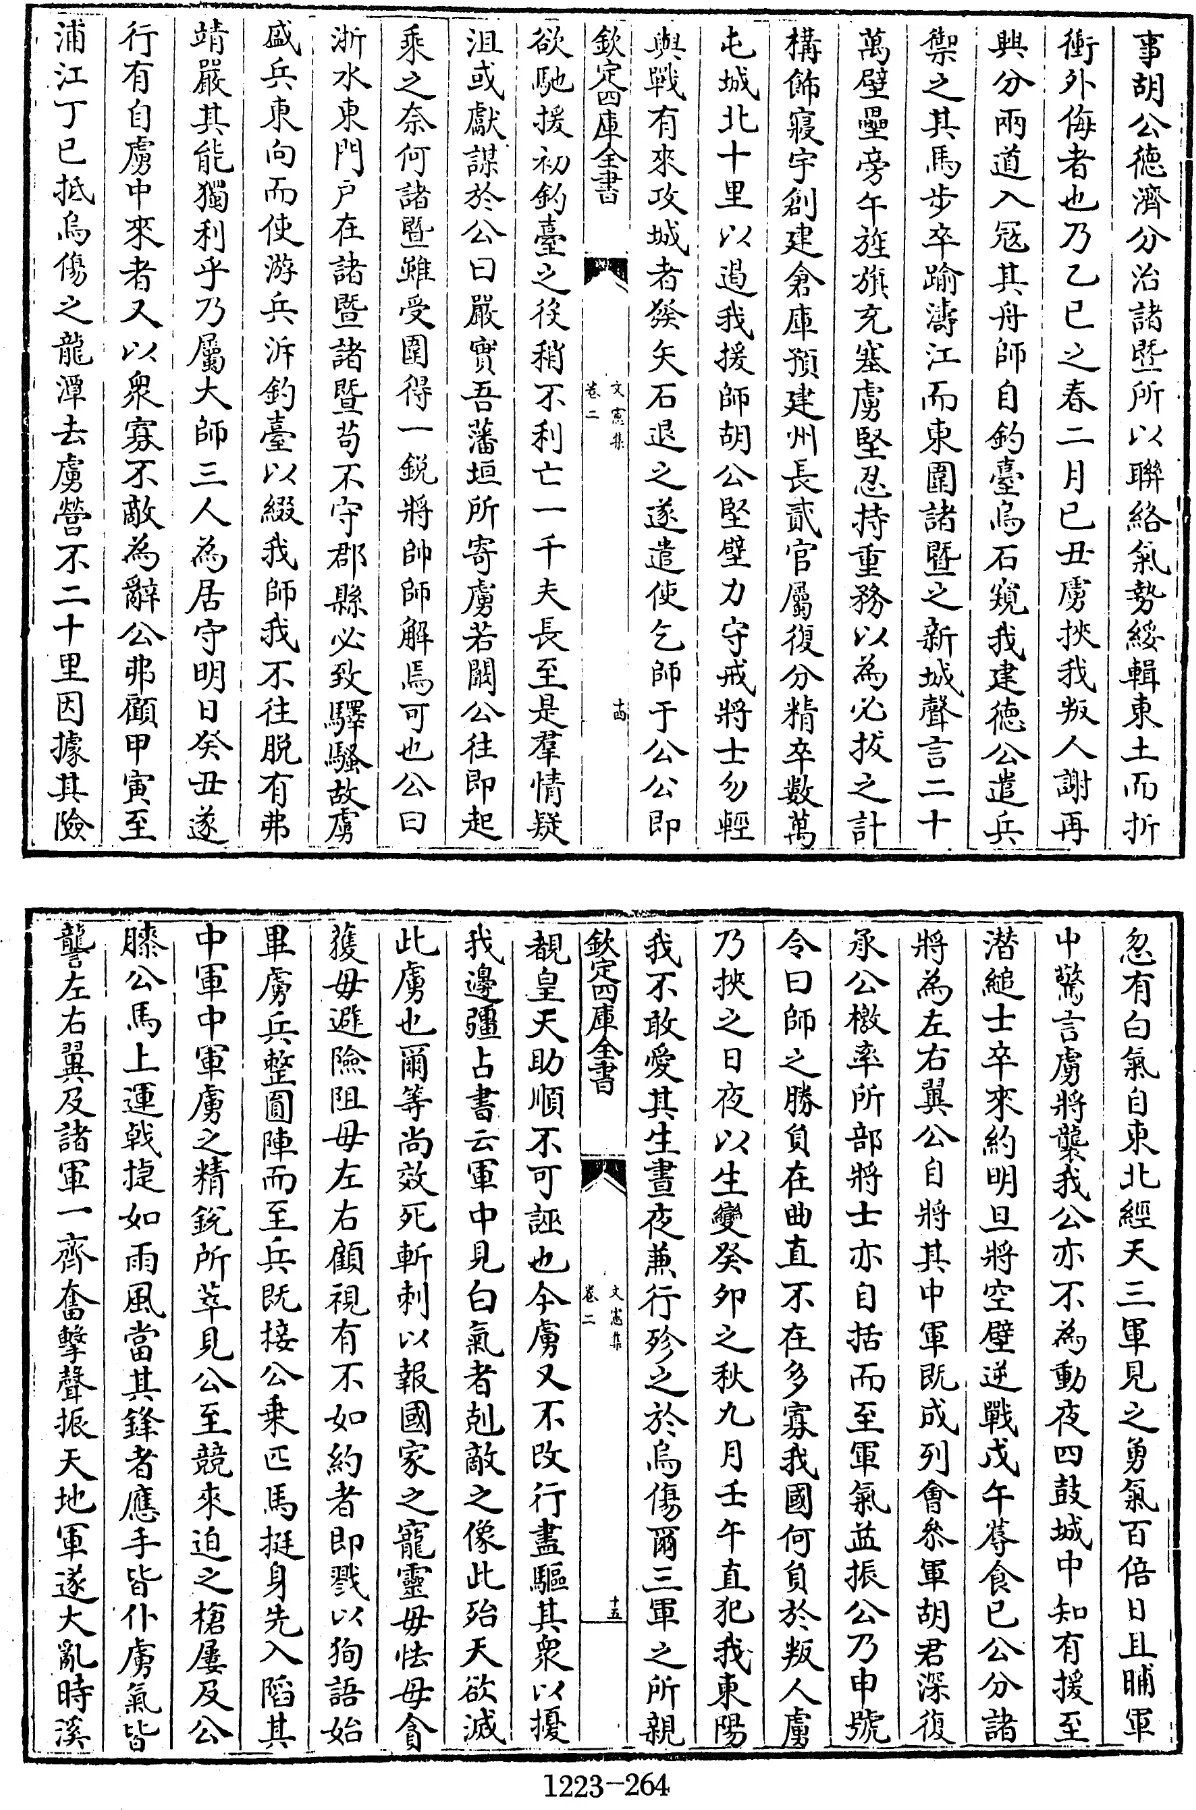 事胡公德濟分治諸暨所以聯絡氣勢綏輯東土而折
衝外侮者也乃乙已之春二月已丑虜挾我叛人謝再
興分兩道入冦其舟師自釣臺烏石窺我建德公遣兵
禦之其馬步卒踰濤江而東圍諸暨之新城聲言二十
萬壁壘旁午旌旗充塞虜堅忍持重務以為必拔之計
構飾寢宇創建倉庫預建州長貳官屬復分精卒數萬
屯城北十里以遏我援師胡公堅壁力守戒將士勿輕
與戰有來攻城者發矢石退之遂遣使乞師于公公即
欽定四庫全書
文憲集
卷二
十四
欲馳援初釣臺之役稍不利亡一千夫長至是羣情疑
沮或獻謀於公曰嚴實吾藩垣所寄虜若闞公往即起
乘之奈何諸暨雖受圍得一銳將帥師解焉可也公曰
浙水東門户在諸暨諸暨苟不守郡縣必致驛騷故虜
盛兵東向而使游兵泝釣臺以綴我師我不往脱有弗
靖嚴其能獨利乎乃屬大師三人為居守明日癸丑遂
行有自虜中來者又以衆寡不敵為辭公弗顧甲寅至
浦江丁已抵烏傷之龍潭去虜營不二十里因據其險
忽有白氣自東北經天三軍見之勇氣百倍日且晡軍
中驚言虜將襲我公亦不為動夜四鼓城中知有援至
潜縋士卒來約明旦將空壁逆戰戊午蓐食已公分諸
將為左右翼公自將其中軍既成列會叅軍胡君深復
承公檄率所部將士亦自括而至軍氣益振公乃申號
令曰師之勝負在曲直不在多寡我國何負於叛人虜
乃挾之日夜以生變癸卯之秋九月壬午直犯我東陽
我不敢愛其生晝夜兼行殄之於烏傷爾三軍之所親
欽定四庫全書
文憲集
卷二
十五
覩皇天助順不可誣也今虜又不改行盡驅其衆以擾
我邊疆占書云軍中見白氣者剋敵之像此殆天欲滅
此虜也爾等尚效死斬刺以報國家之寵靈毋怯毋貪
獲毋避險阻毋左右顧視有不如約者即戮以狥語始
畢虜兵整圓陣而至兵既接公乗匹馬挺身先入䧟其
中軍中軍虜之精銳所萃見公至競來迫之槍屢及公
膝公馬上運戟捷如雨風當其鋒者應手皆仆虜氣皆
讋左右翼及諸軍一齊奮擊聲振天地軍遂大亂時溪
1223-264